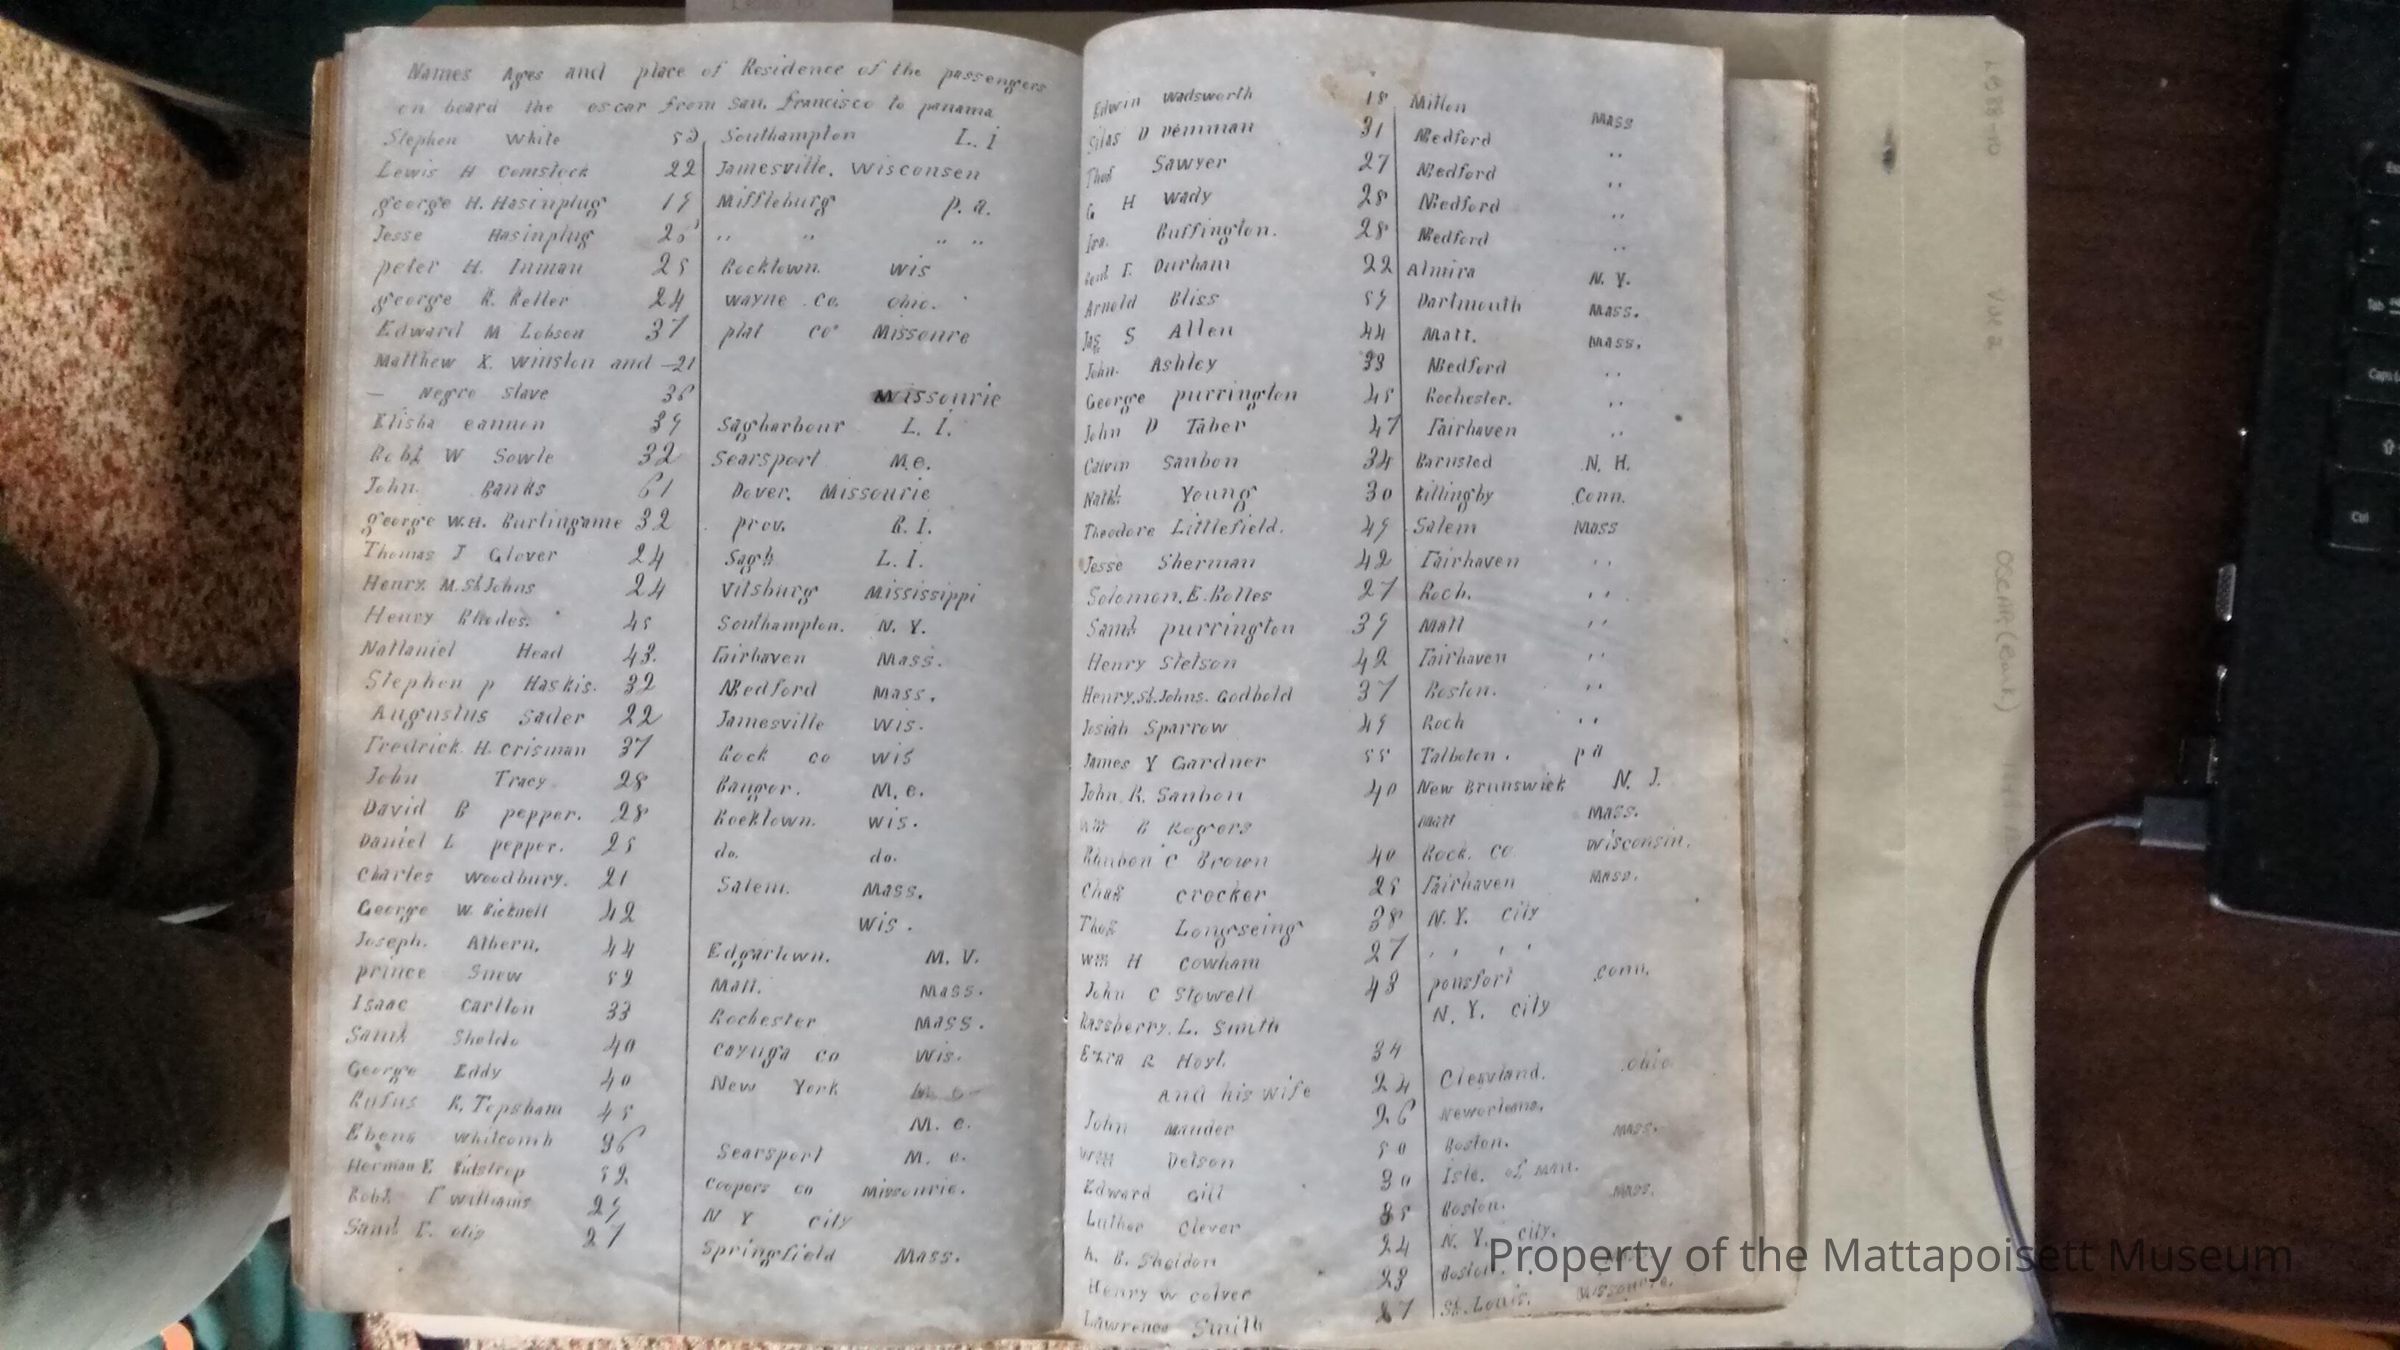 Names Ages and place of Residence of the passengers
on board the oscar from san. francisco to panama
Stephen White Southampton L. i
Lewis H Comstock 22 Jamesville. Wisconsen
george H. Hasinplug 19 Miffleburg p. a.
Jesse Hasinplug .. .. .. ..
peter H. Inman 25 Rocktown. Wis
george R. Keller 24 wayne . Co. ohio.
Edward M Lobson 37 plat co Missoure
Matthew X. Winston and - 21
- Negro Slave Missourie
Elisha 39 Sagharbour L. I.
Robt W Sowle 32 Searsport M.e.
John. Banks 61 Dover. Missourie
george W.H. Burlingame 32 prov. R. I.
Thomas J Glover 24 Sagh L. I.
Henry. M. St Johns 24 Vitsburg Mississippi
Henry Rhodes. 45 Southampton. N. Y.
Nattaniel Head 43. Fairhaven Mass.
Stephen p Haskis. 32 Medford Mass.
Augustus Sader 22 Jamesville Wis.
Fredrick. H. Crisman 37 Rock co wis
John Tracy. 28 Bangor. M. e.
David B pepper. 28 Rocktown. wis.
Daniel L pepper. 25 do. do.
Charles Woodbury. 21 Salem. Mass.
George W. Bicknell 42 wis.
Joseph. Athern, 44 Edgartown. M. V.
prince Snow 52 Matt. Mass.
Isaac Carlton 33 Rochester Mass.
Saml. 40 Cayuga co Wis.
George Eddy 40 New York
Rufus R. Topsham 45 M. e.
Ebens Whitcomb 36 Searsport M. e.
Herman E. 52 Coopers co Missourie.
Robt. F Williams 29 N Y city
Saml. F. otis 27 Springfield Mass.
Edwin Wadsworth 18 Milton Mass
Silas D 31 Medford ..
Thos Sawyer 27 Medford ..
G H Wady 28 Medford ..
Ira. Buffington. 28 Medford ..
Benj. F. Durham 22 Almira N. Y.
Arnold Bliss 59 Dartmouth Mass.
Jas S Allen 44 Matt. Mass.
John. Ashley 33 Medford ..
George purrington 45 Rochester. ..
John D Taber 47 Fairhaven ..
Calvin Sanbon 34 Barnsted N. H.
Nathl. Young 30 Killingby Conn.
Theodore Littlefield. 49 Salem Mass
Jesse Sherman 42 Fairhaven ..
Solomon. E. Bolles 27 Roch. ..
Saml. purrington 39 Matt ..
Henry Stetson 42 Fairhaven ..
Henry. St. Johns. Godbold 37 Boston. ..
Josiah Sparrow 49 Roch ..
James Y Gardner 55 Talboton. pa
John. R. Sanbon 40 New Brunswick N. J.
Wm B Rogers Matt Mass.
Rhuben C Brown 40 Rock. Co. Wisconsin.
Chas Crocker 25 Fairhaven Mass.
Thos Longseing 38 N. Y. city
Wm H Cowham 27 .. ..
John C Stowell 43 ponsfort .conn.
Rassberry. L. Smith N. Y. city
Ezra R Hoyt. 34
and his wife 24 Clesvland. .ohio.
John Mauder 26 Neworleans.
Wm Delson 50 Boston. Mass.
Edward Gill 30 Isle. of man.
Luther Clever Boston. Mass.
R. B. Sheldon 24 N. Y. city.
Henry W Colver 23 Boston.
Lawrence Smith 27 St. Louis. Missourie.
Property of the Mattapoisett Museum
OSCAR (bark)
Tab
Caps
Ctrl